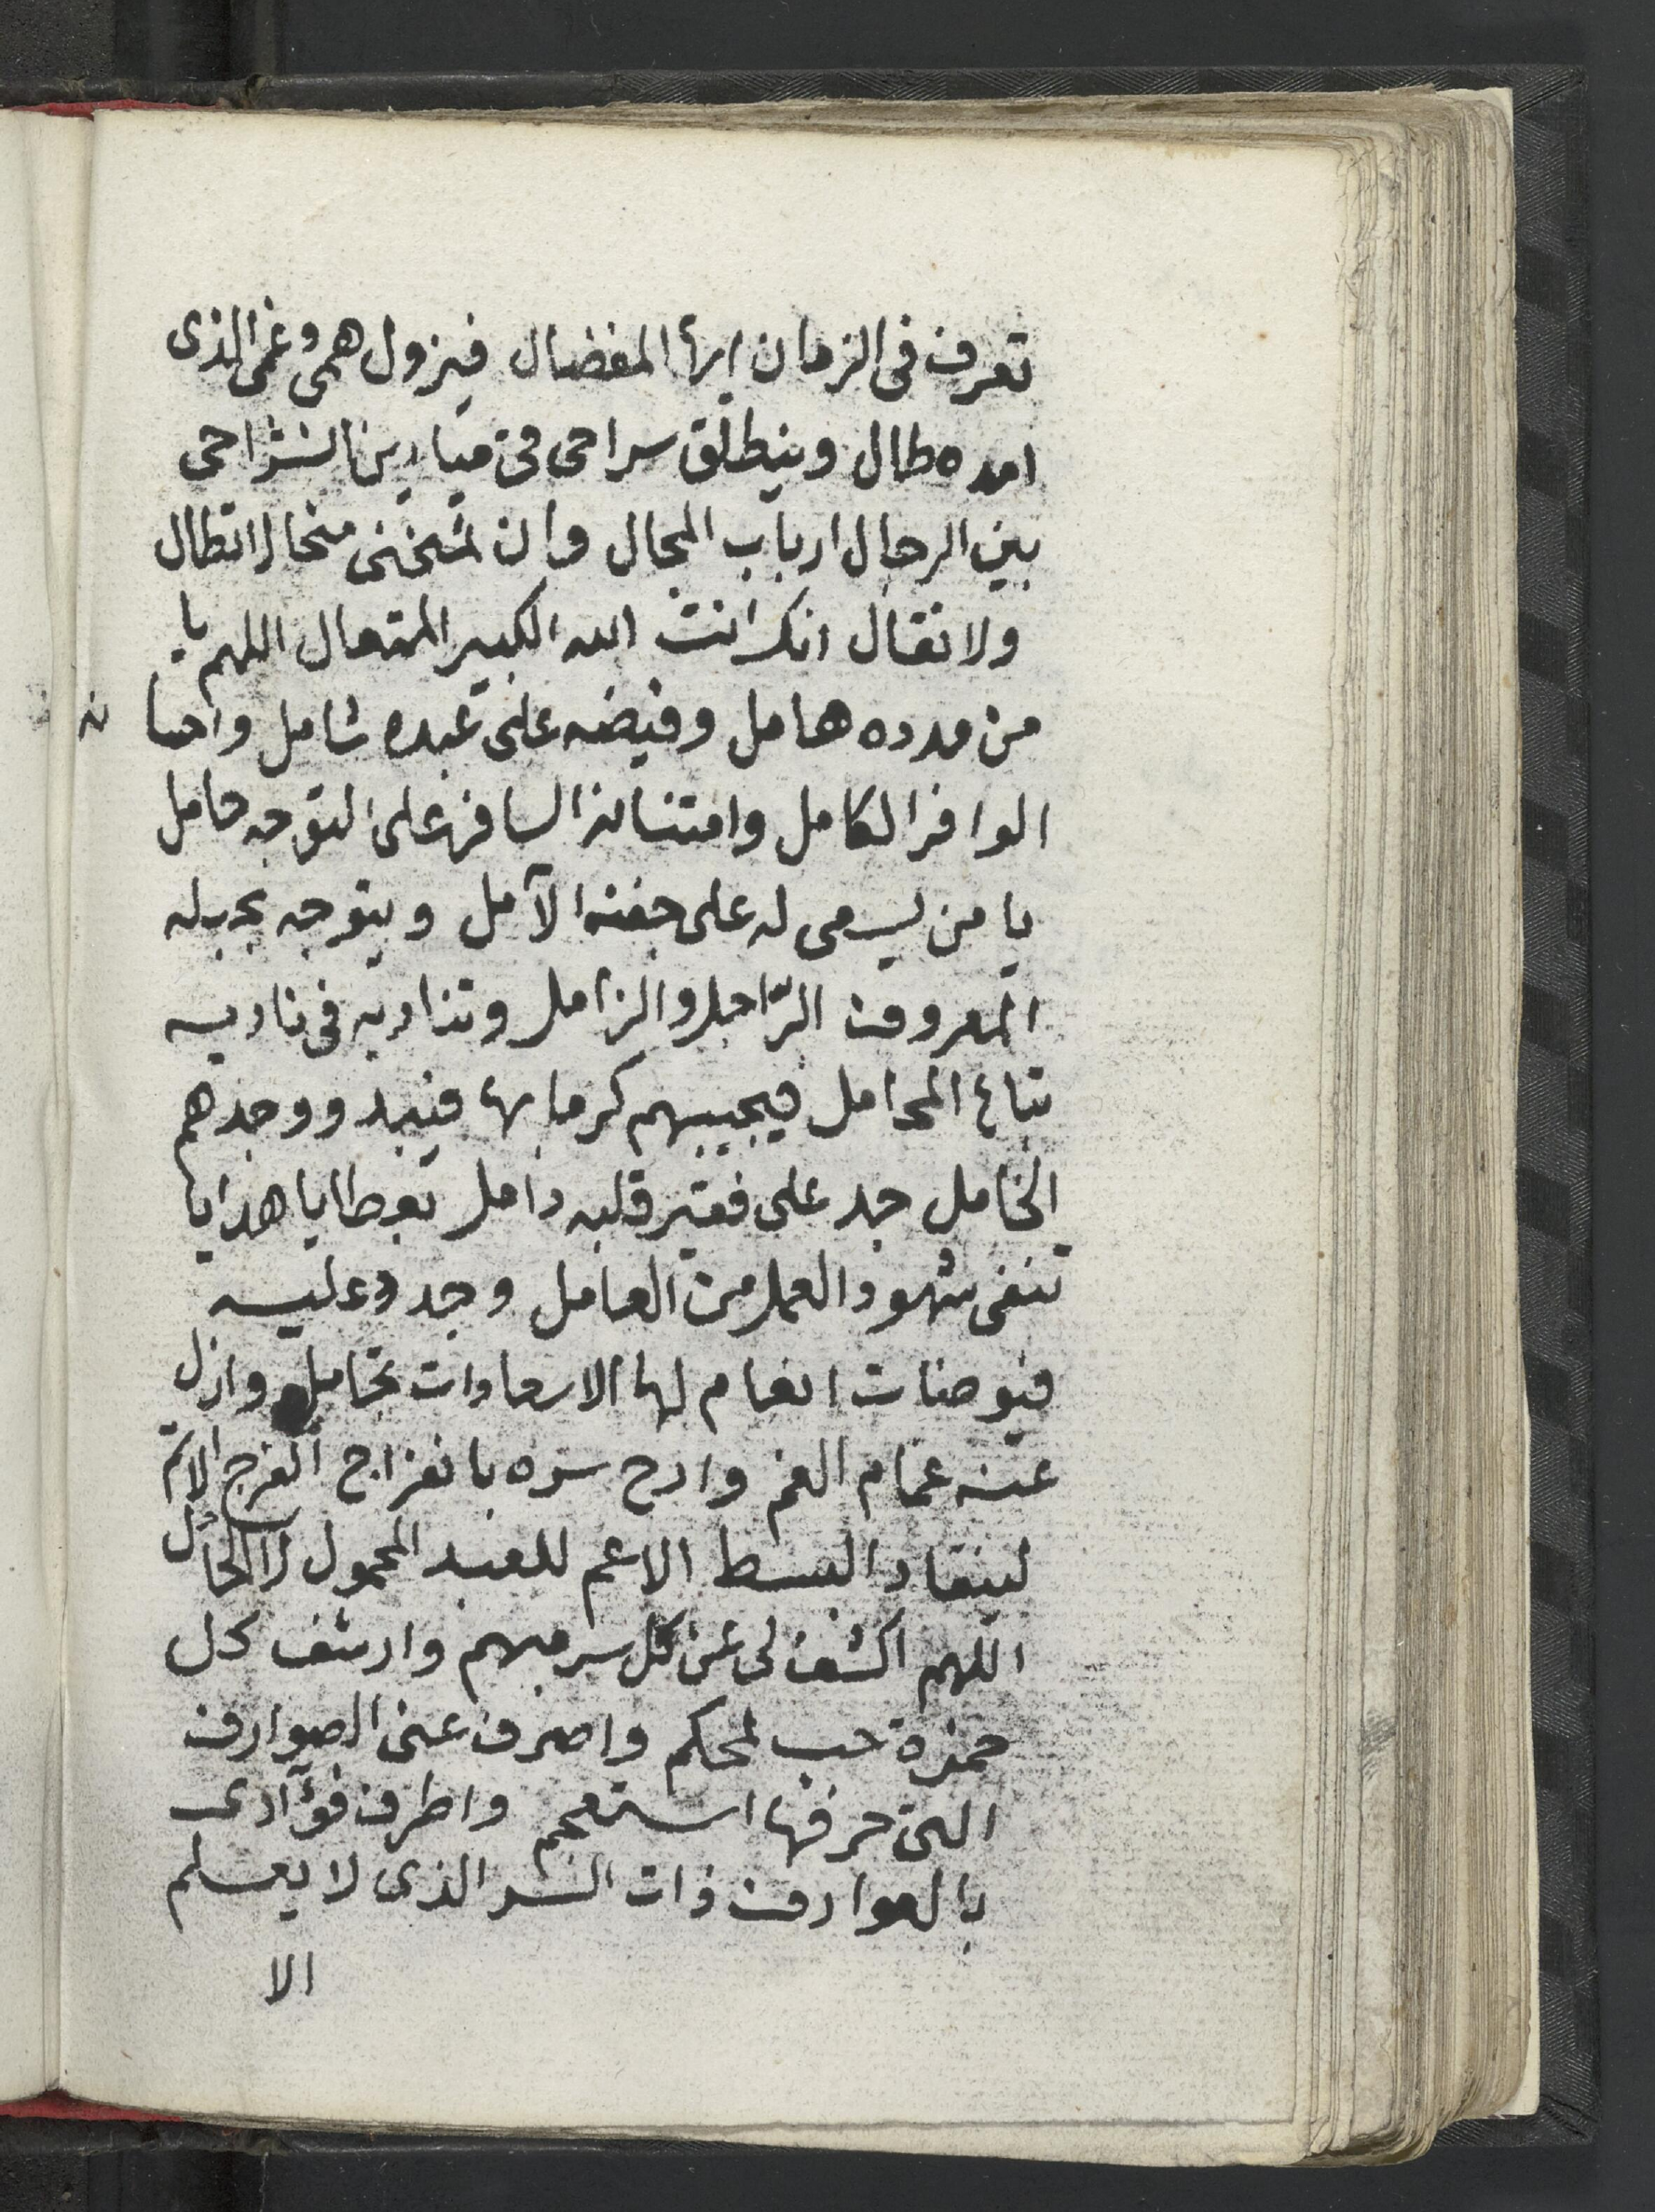 تعرف فى الزمان ايها المفضال فيزول همى وغمى الذى
امده طال وينطلق سراحى فى ميادين انشراحى
بين الرجال ارباب المجال وان تمنحنى منحا لا تطال
ولا تقال انك انت الله الكبير المتعال اللهم يا
من مدده هامل وفيضه على عبده شامل واحسانه
الوافر الكامل وامتنانه السافر على التوجه حامل
يا من يسعى له على جفنه الآمل ويتوجه بحبله
المعروف الراجل والزامل وتناديه فى ناديه
تباع المحامل فيجيبهم كرما بها فيبدو وجدهم
الخامل جد على فقير قلبه دامل بعطايا هدايا
تنفى شهود العمل من العامل وجدد عليه
فيوضات انعام لها الاسعادات تحامل وازل
عنه غمام الغم وارح سره بانفراج الفرج الاتم
لينقاد البسط الاعم للعبد المحمول لا الحامل
اللهم اكشف لى عن كل سر مبهم وارشف كل
خمرة حب لمحكم واصرف عنى الصوارف
التى حرفها استعجم واطرف فؤآدى
بالعوارف ذات السر الذى لا يعلم
الا